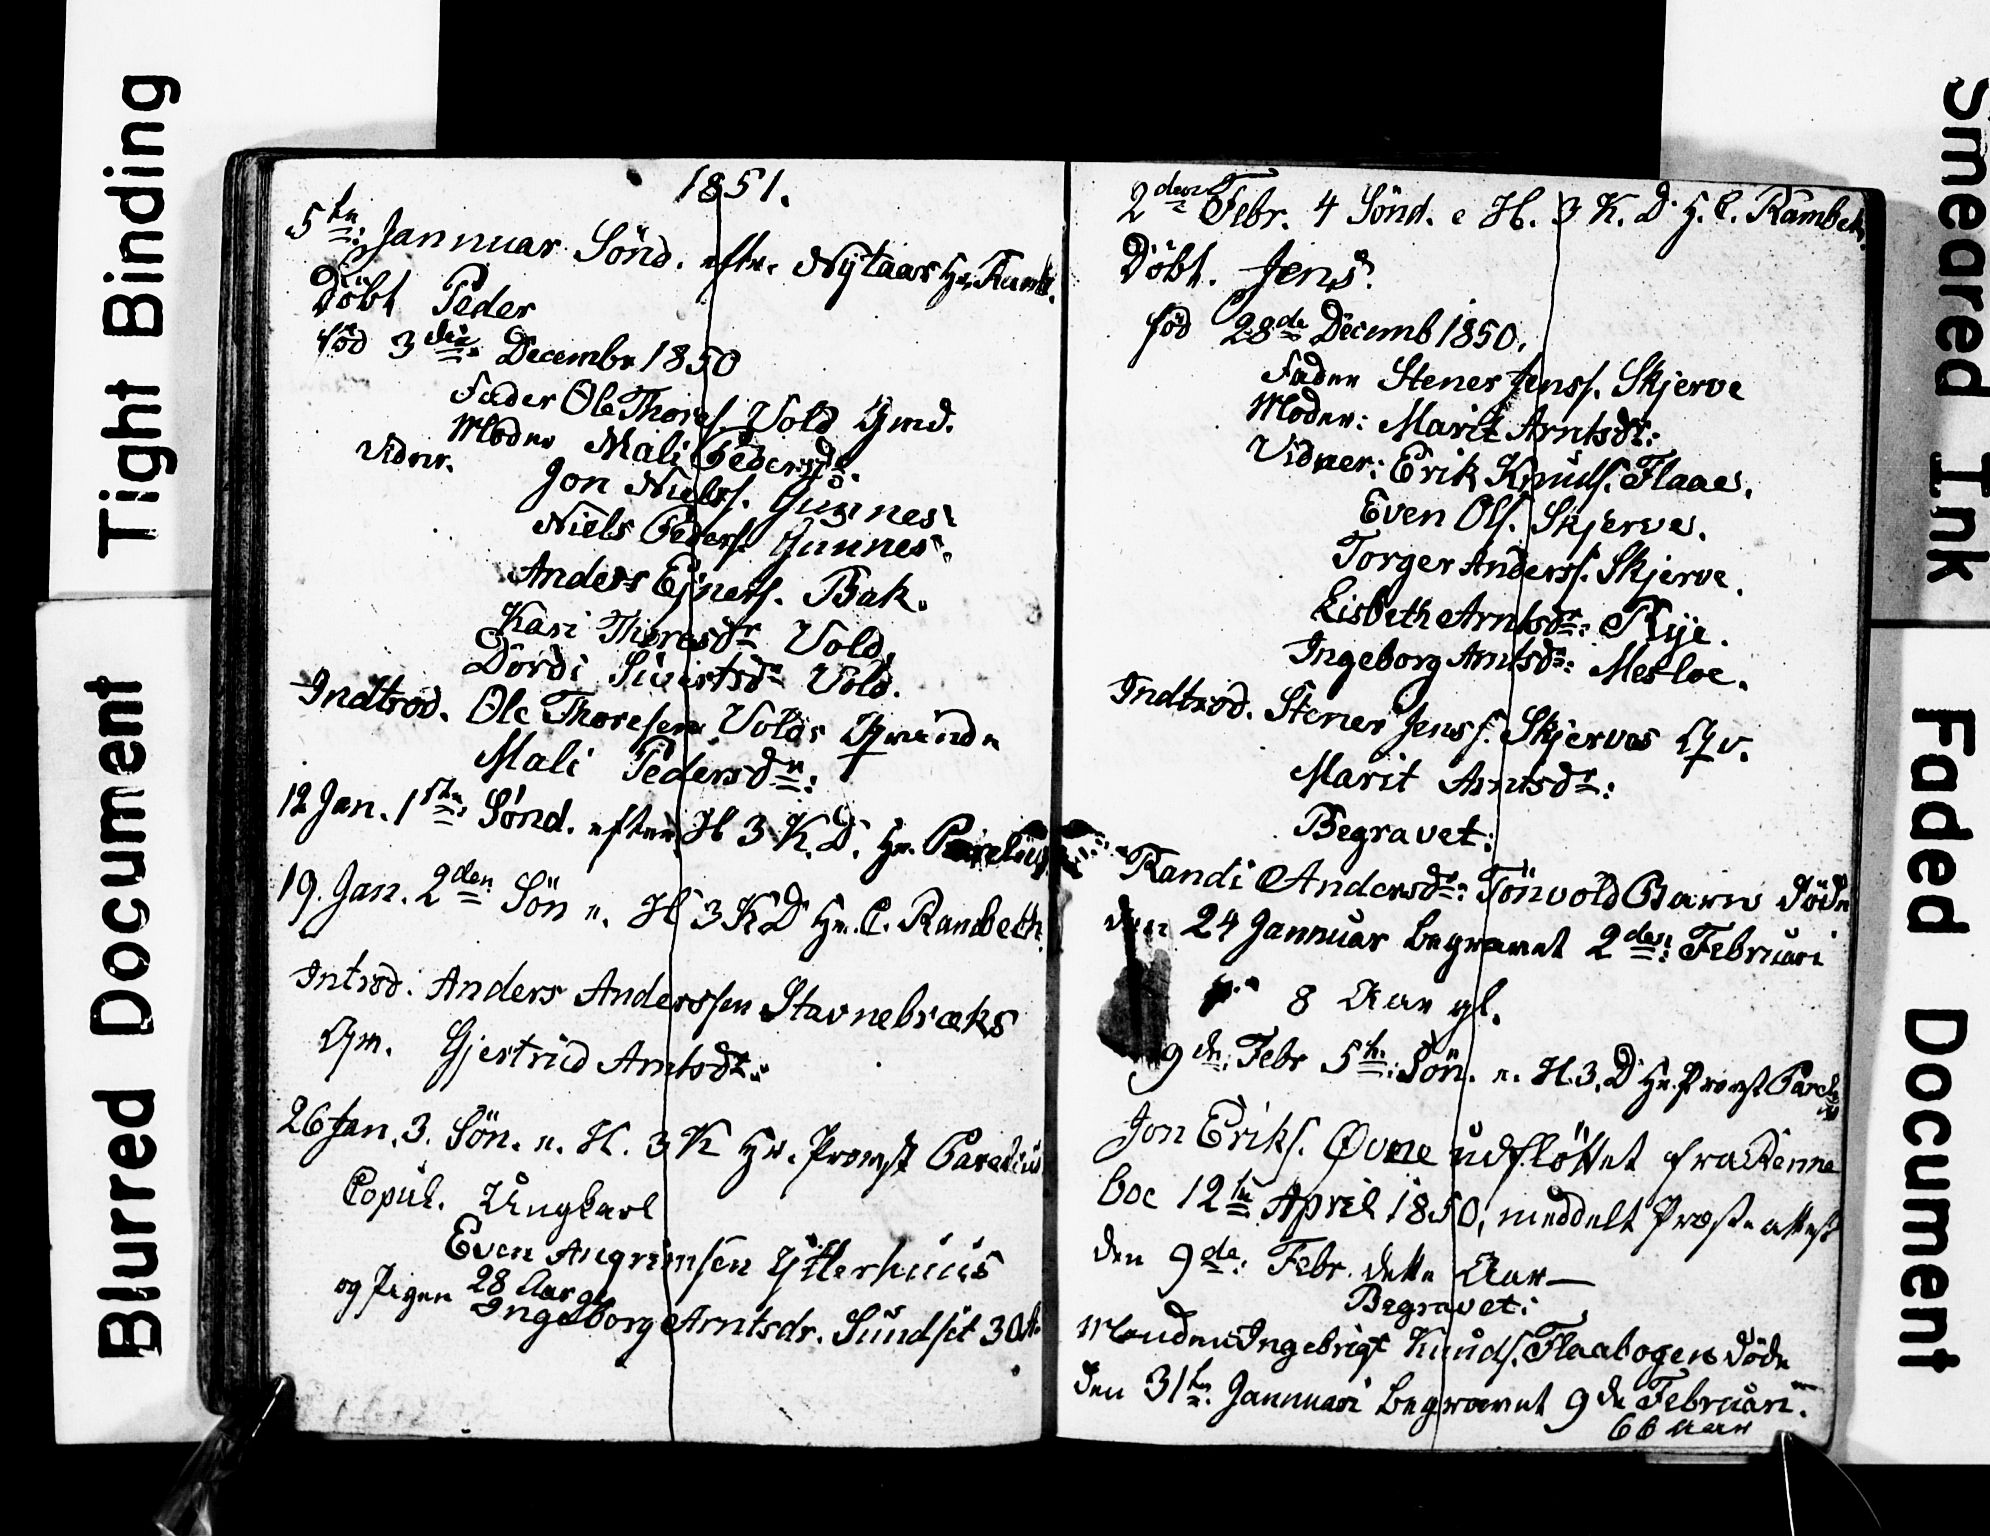 Tight Binding
Blurred Document
1851.
5te Jannuar Sönd. efter Nytaar Hr. Ramb.
Döbt Peder
föd 3die December 1850
Fader Ole Thores. Vold Gmd.
Moder Mali Pedersdr.
Vidner. Jon Niels. Gunnes
Niels Peders. Gunnes
Anders Ejners. Bak.
Kari Thoresdr Vold.
Dordi Sivertsdr Vold.
Indtrod. Ole Thoresen Volds
Mali Pedersdr:
12 Jan. 1ste Sönd. efter H 3 K. D. Hr. Parelius
19. Jan. 2den Sön e. H 3 K D Hr. C. Rambech
Introd. Anders Anderssen Stavnebræks
Gjertrud Arntsdr.
26 Jan. 3. Sön. e. H. 3 K Hr. Provst Parelius
Copul. Ungkarl
Even Angrimsen Ytterhuus
28 Aar gl
og Pigen Ingeborg Arntsdr. Sundset 30 A.
2den Febr. 4 Sönd. e H. 3 K. D H. C. Rambech.
Döbt. Jens
föd 28de Decemb 1850.
Fader Stener Jenss. Skjerve
Moder: Marit Arntsdr:
Vidner: Erik Knuds. Flaae.
Even Ols. Skjerve.
Torger Anderss. Skjerve.
Lisbeth Arntsdr: Rye.
Ingeborg Arntsdr: Mesloe.
Indtrod. Stener Jenss. Skjerves Qv.
Marit Arntsdr:
Begravet:
Randi Andersdr: Tönvold Barn döde
den 24 Jannuar begravet 2den Februari
8 Aar gl.
9de Febr 5te Sön. e. H. 3. D Hr. Provst Parelius
Jon Eriks. Øvne udflöttet fra Renne
boe 12te April 1850, meddelt Præsteattest
den 9de Febr. dette Aar
Begravet:
Manden Ingebrigt Knuds. Flaabogen döde
den 31te Jannuari begravet 9de Februari.
66 Aar
Smeared Ink
Faded Document